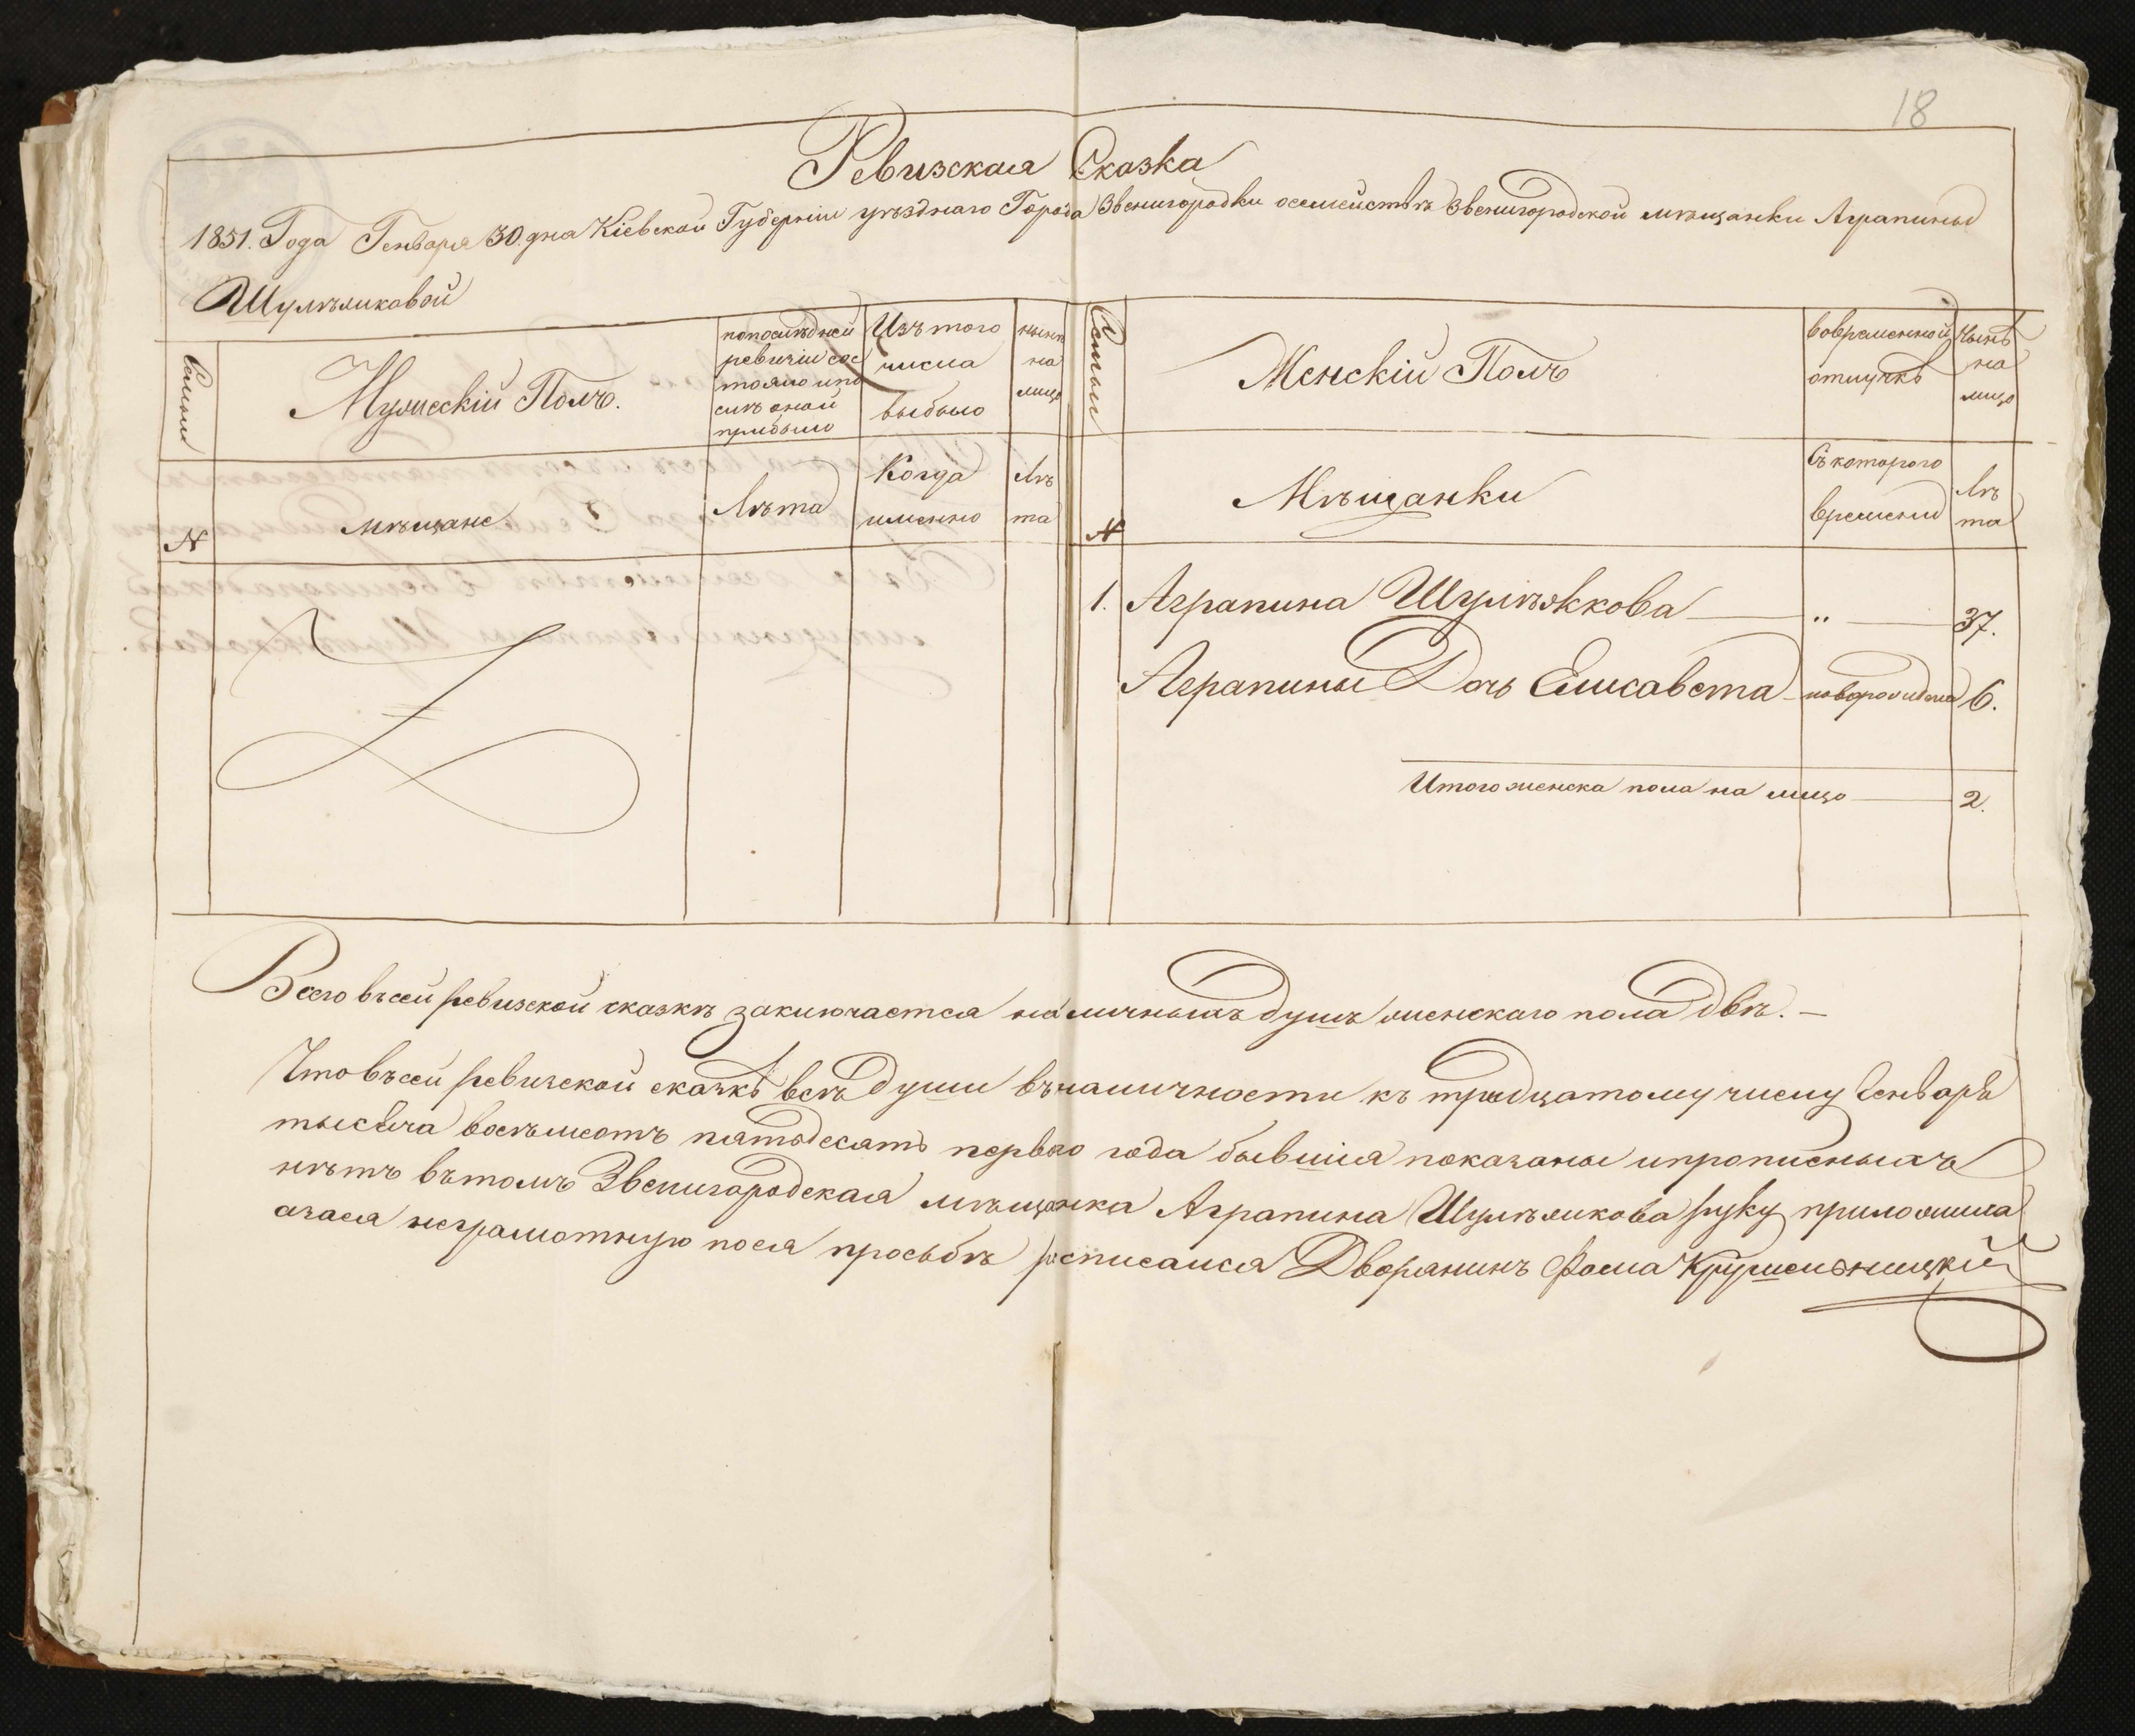 18
Ревизская Сказка
1851. Года Генваря 30. дня Кіевской Губерніи уѣзднаго Города Звенигородки осемействѣ Звенигородской мѣщанки Аграпины
Шулѣжковой
Семьи
Мужескій Полъ.
попослѣдней
ревизіи сос
тояло и по
слѣ оной
прибыло
Изъ того
числа
выбыло
нынѣ
на
лицо
Семьи
Женскій Полъ
вовременной
отлучкѣ
Нынѣ
на
лицо
№
мѣщане
Лѣта
Когда
именно
Лѣ
та
№
Мѣщанки
Съ котораго
времени
Лѣ
та
1. Аграпина Шулѣжкова — „ — 37.
Аграпины Дочь Елисавета новорождена 6.
Итого женска пола на лицо — 2.
Всего въсей ревизской сказкѣ заключается наличныхъ душъ женскаго пола двѣ. —
Что въсей ревизской сказкѣ всѣ души въналичности къ тридцатому числу Генваря
тысяча восемьсотъ пятьдесятъ перваго года бывшія показаны ипрописныхъ
нѣтъ вътомъ Звенигородская мѣщанка Аграпина Шулѣжкова руку приложила
азася неграмотную поея прозьбѣ росписался Дворянинъ Фома